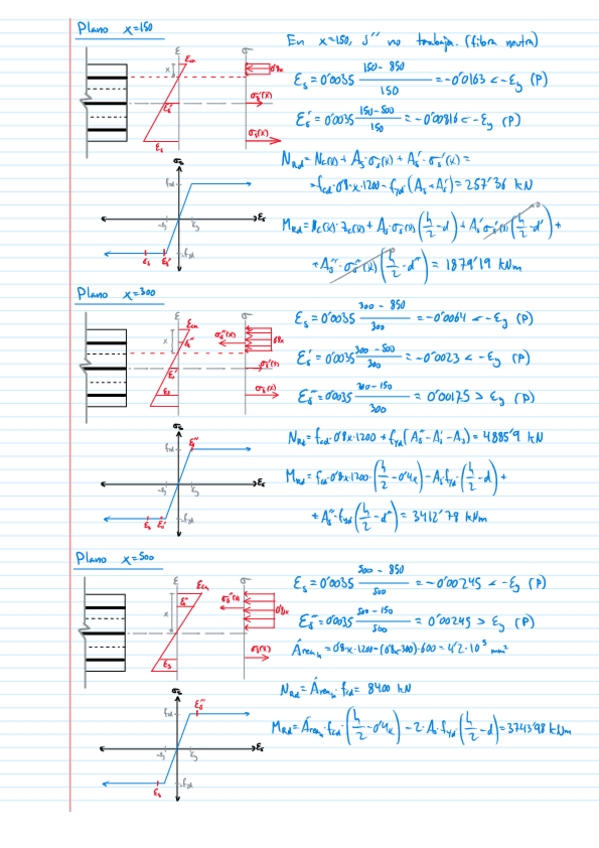 Plano x=150
En x=150, S'' no trabaja. (fibra neutra)
εs = 0'0035 (150 - 850)/150 = -0'0163 < -εy (P)
εs' = 0'0035 (150-500)/150 = -0'00816 < -εy (P)
NRd = Nc(x) + As·σs(x) + As'·σs'(x) =
= fcd·0'8·x·1200 - fyd(As+As') = 257'36 kN
MRd = Nc(x)·zc(x) + As·σs(x)(h/2 - d) + As'·σs'(x)(h/2 - d') +
+ As''·σs''(x)(h/2 - d'') = 1879'19 kNm
Plano x=300
εs = 0'0035 (300 - 850)/300 = -0'0064 < -εy (P)
εs' = 0'0035 (300 - 500)/300 = -0'0023 < -εy (P)
εs'' = 0'0035 (300 - 150)/300 = 0'00175 > εy (P)
NRd = fcd·0'8x·1200 + fyd(As'' - As' - As) = 4885'9 kN
MRd = fcd·0'8x·1200·(h/2 - 0'4x) - As·fyd·(h/2 - d) +
+ As''·fyd(h/2 - d'') = 3412'78 kNm
Plano x=500
εs = 0'0035 (500 - 850)/500 = -0'00245 < -εy (P)
εs'' = 0'0035 (500 - 150)/500 = 0'00245 > εy (P)
Áreah = 0'8·x·1200 - (0'8x-300)·600 = 4'2·10⁵ mm²
NRd = Áreah·fcd = 8400 kN
MRd = Áreah·fcd·(h/2 - 0'4x) - 2·As·fyd(h/2 - d) = 3743'98 kNm